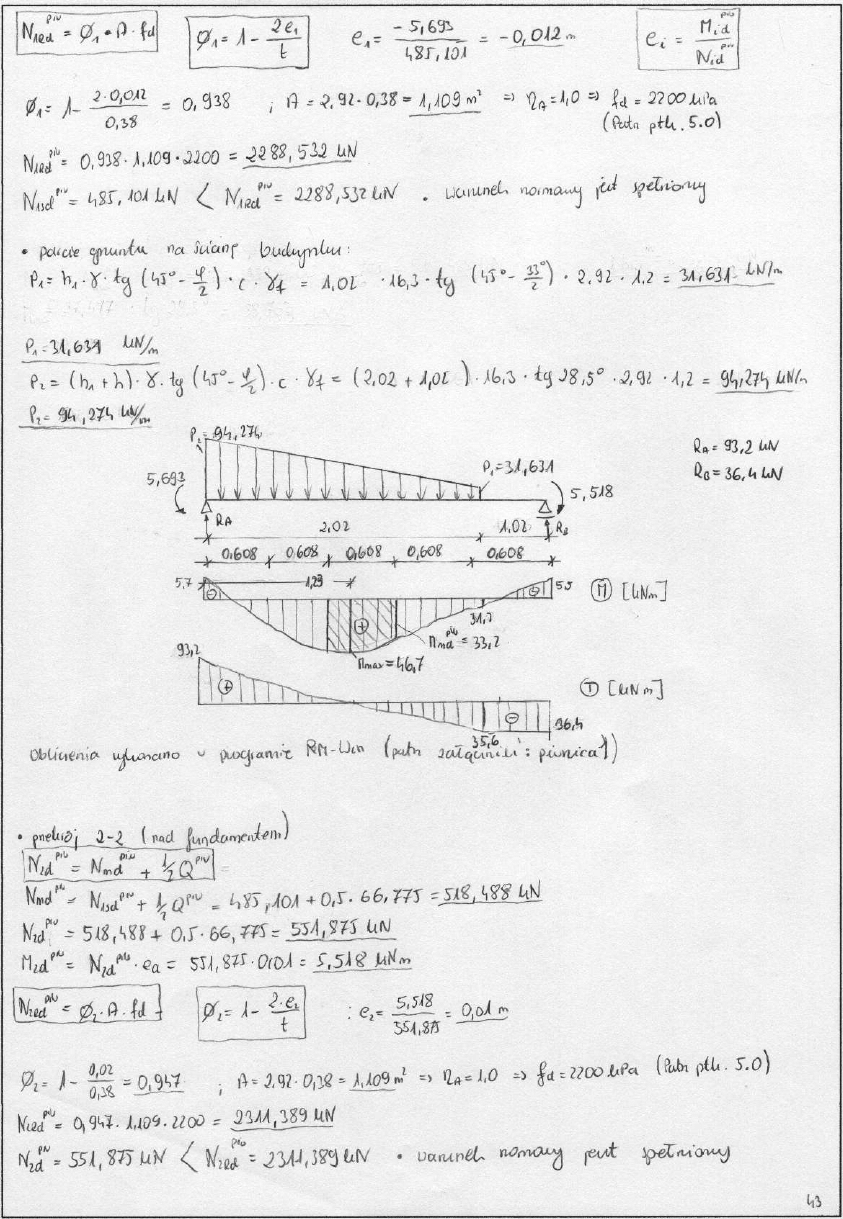 N₁Rd^piw = Ø₁ · A · fd   Ø₁ = 1 - 2e₁/t   e₁ = -5,693/485,101 = -0,012 m   eᵢ = Mid^piw/Nid^piw
Ø₁ = 1 - 2·0,012/0,38 = 0,938   ; A = 2,92 · 0,38 = 1,109 m² => ηA = 1,0 => fd = 2200 kPa
(Patrz pkt. 5.0)
N₁Rd^piw = 0,938 · 1,109 · 2200 = 2288,532 kN
N₁sd^piw = 485,101 kN < N₁Rd^piw = 2288,532 kN · warunek normowy jest spełniony
• parcie gruntu na ścianę budynku:
P₁ = h₁ · γ · tg (45° - φ/2) · c · γf = 1,02 · 16,3 · tg (45° - 33°/2) · 2,92 · 1,2 = 31,631 kN/m
P₁ = 31,631 kN/m
P₂ = (h₁ + h) · γ · tg (45° - φ/2) · c · γf = (2,02 + 1,02) · 16,3 · tg 28,5° · 2,92 · 1,2 = 94,274 kN/m
P₂ = 94,274 kN/m
P₂ = 94,274
RA = 93,2 kN
P₁ = 31,631
RB = 36,4 kN
5,693
5,518
RA 2,02 1,02 RB
0,608 0,608 0,608 0,608 0,608
5,7 1,29 5,5 M [kNm]
31,2
Mmd^piw = 33,2
Mmax = 46,7
93,2
T [kNm]
36,4
35,6
Obliczenia wykonano w programie RM-Win (patrz załączniki: piwnica 1)
• przekrój 2-2 (nad fundamentem)
N₂d^piw = Nmd^piw + 1/2 Q^piw
Nmd^piw = N₁sd^piw + 1/2 Q^piw = 485,101 + 0,5 · 66,775 = 518,488 kN
N₂d^piw = 518,488 + 0,5 · 66,775 = 551,875 kN
M₂d^piw = N₂d^piw · ea = 551,875 · 0,01 = 5,518 kNm
N₂Rd^piw = Ø₂ · A · fd   Ø₂ = 1 - 2·e₂/t   ; e₂ = 5,518/551,875 = 0,01 m
Ø₂ = 1 - 0,02/0,38 = 0,947 ; A = 2,92 · 0,38 = 1,109 m² => ηA = 1,0 => fd = 2200 kPa (Patrz pkt. 5.0)
N₂Rd^piw = 0,947 · 1,109 · 2200 = 2311,389 kN
N₂d^piw = 551,875 kN < N₂Rd^piw = 2311,389 kN • warunek normowy jest spełniony
43